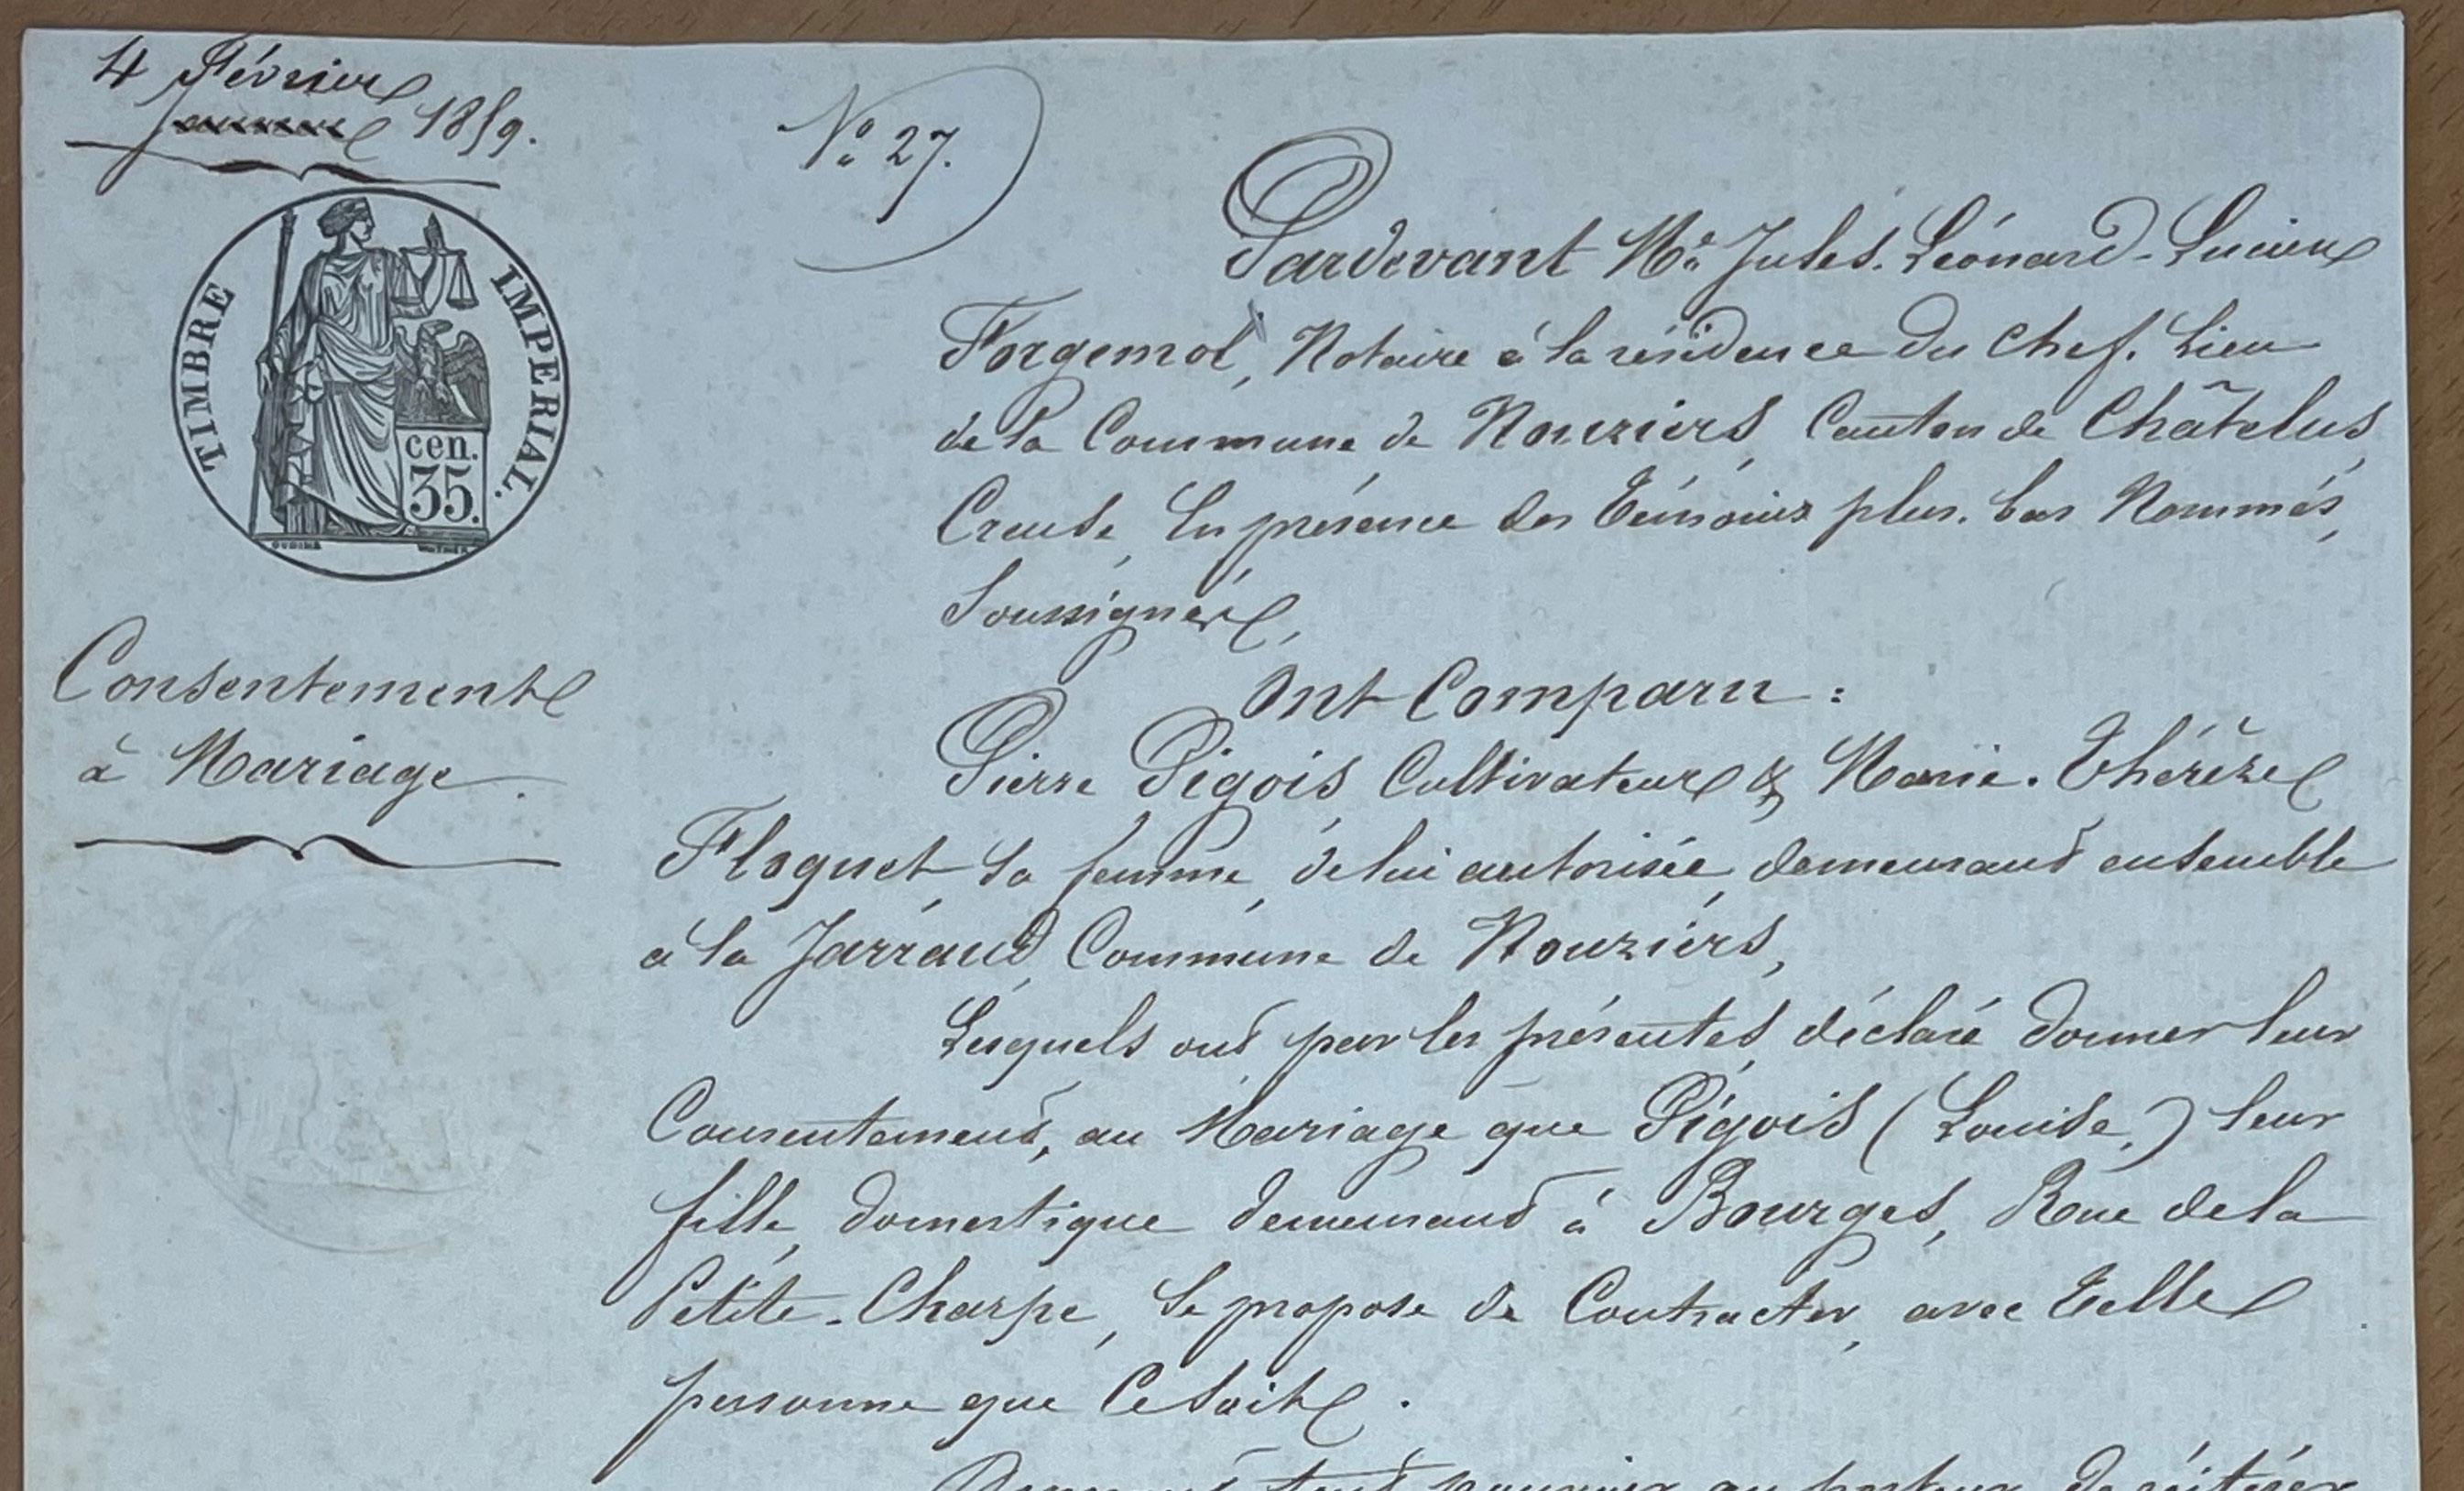 4 Février
janvier 1859.
N° 27.
TIMBRE IMPERIAL.
cen.
35.
Consentement
à Mariage.
Pardevant Me Jules-Léonard-Lucien
Forgemol, Notaire à la résidence du Chef-Lieu
de la Commune de Nouziers, Canton de Châtelus,
Creuse, En présence des Témoins plus-bas Nommés,
Soussignés,
Ont Comparu :
Pierre Pigois Cultivateur & Marie-Thérèze
Floquet sa femme, de lui autorisée, demeurant ensemble
à la Jarraud, Commune de Nouziers,
Lesquels ont par les présentes, déclaré donner leur
Consentement, au Mariage que Pigois (Louise,) leur
fille, domestique demeurant à Bourges, Rue de la
Petite-Charpe, Se propose de Contracter, avec telle
personne que Ce soit.
pouvoir au porteur